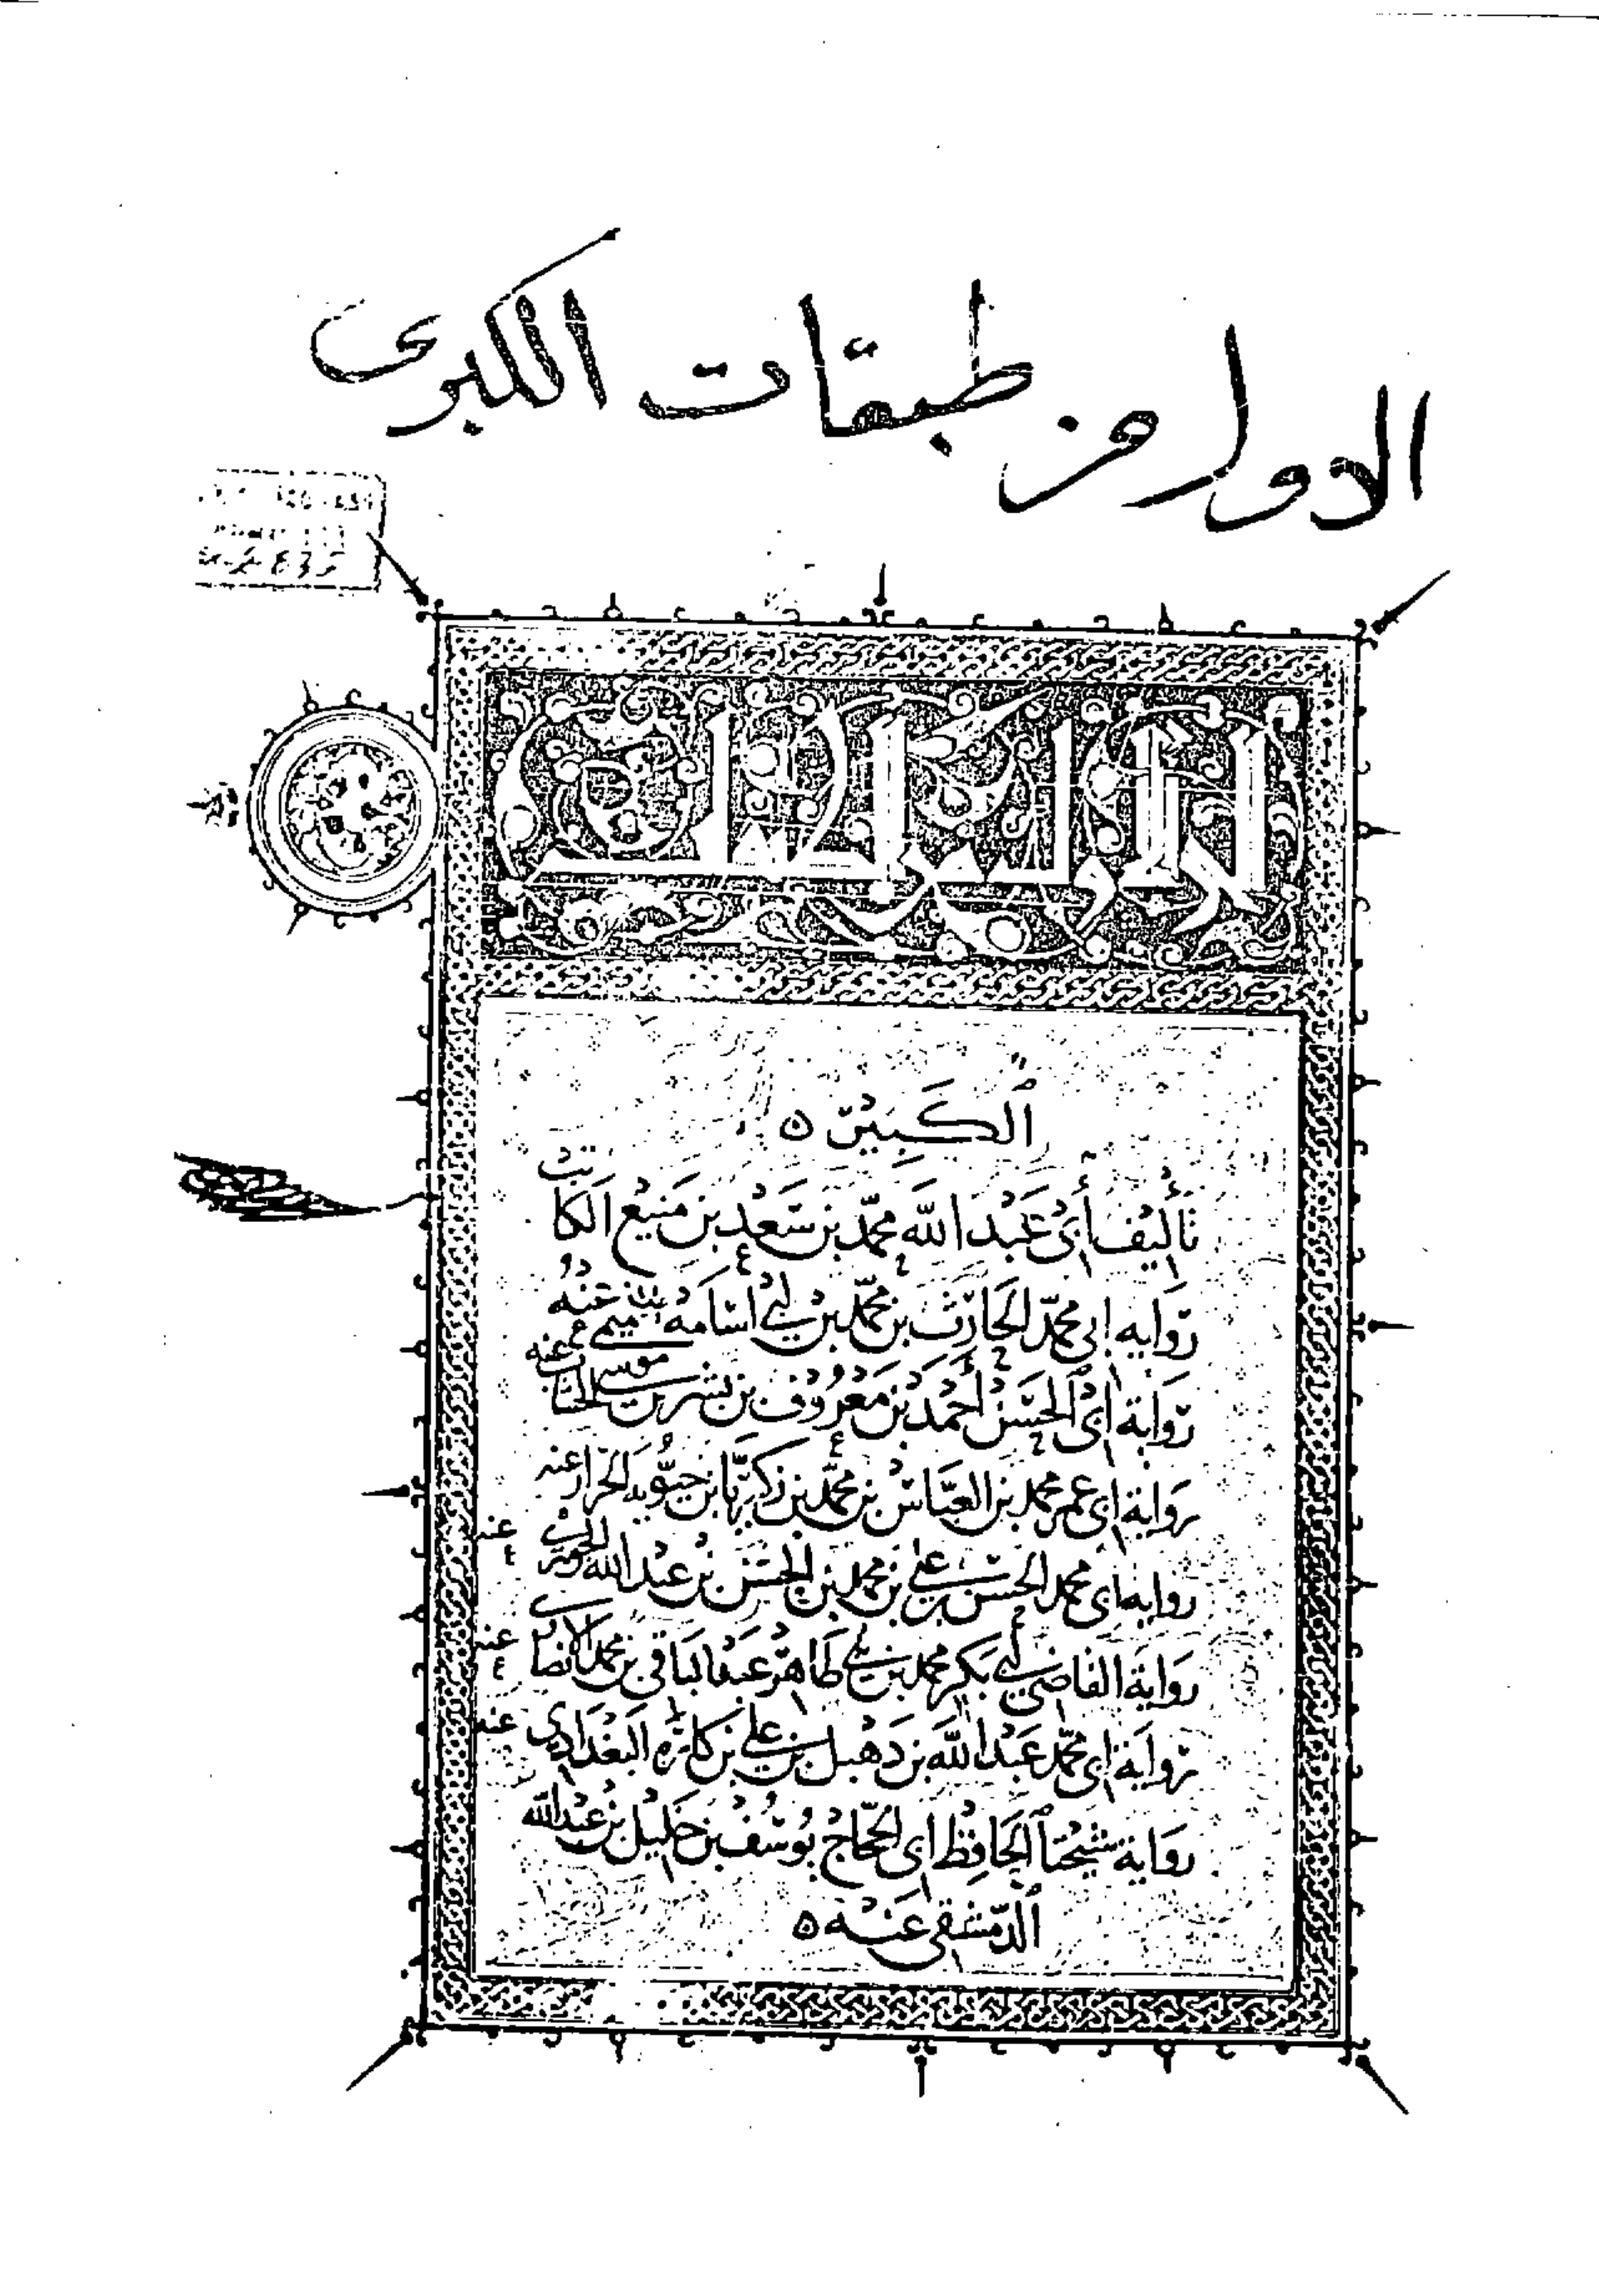 الاول من طبقات الكبرى
الكبير ه
تأليف أبي عبد الله محمد بن سعد بن منيع الكاتب
رواية ابي محمد الحارث بن محمد بن أبي أسامة التميمي عنه
رواية ابي الحسن أحمد بن معروف بن بشر بن موسى الخشاب عنه
رواية ابي عمر محمد بن العباس بن محمد بن زكريا بن حيويه الخزاز عنه
رواية ابي محمد الحسن بن علي بن محمد بن الحسن بن عبد الله الجوهري عنه
رواية القاضي أبي بكر محمد بن عبد الباقي بن محمد الانصاري عنه
رواية ابي محمد عبد الله بن دهبل بن علي بن كاره البغدادي عنه
رواية شيخنا الحافظ ابي الحجاج يوسف بن خليل بن عبد الله
الدمشقي عنه ه